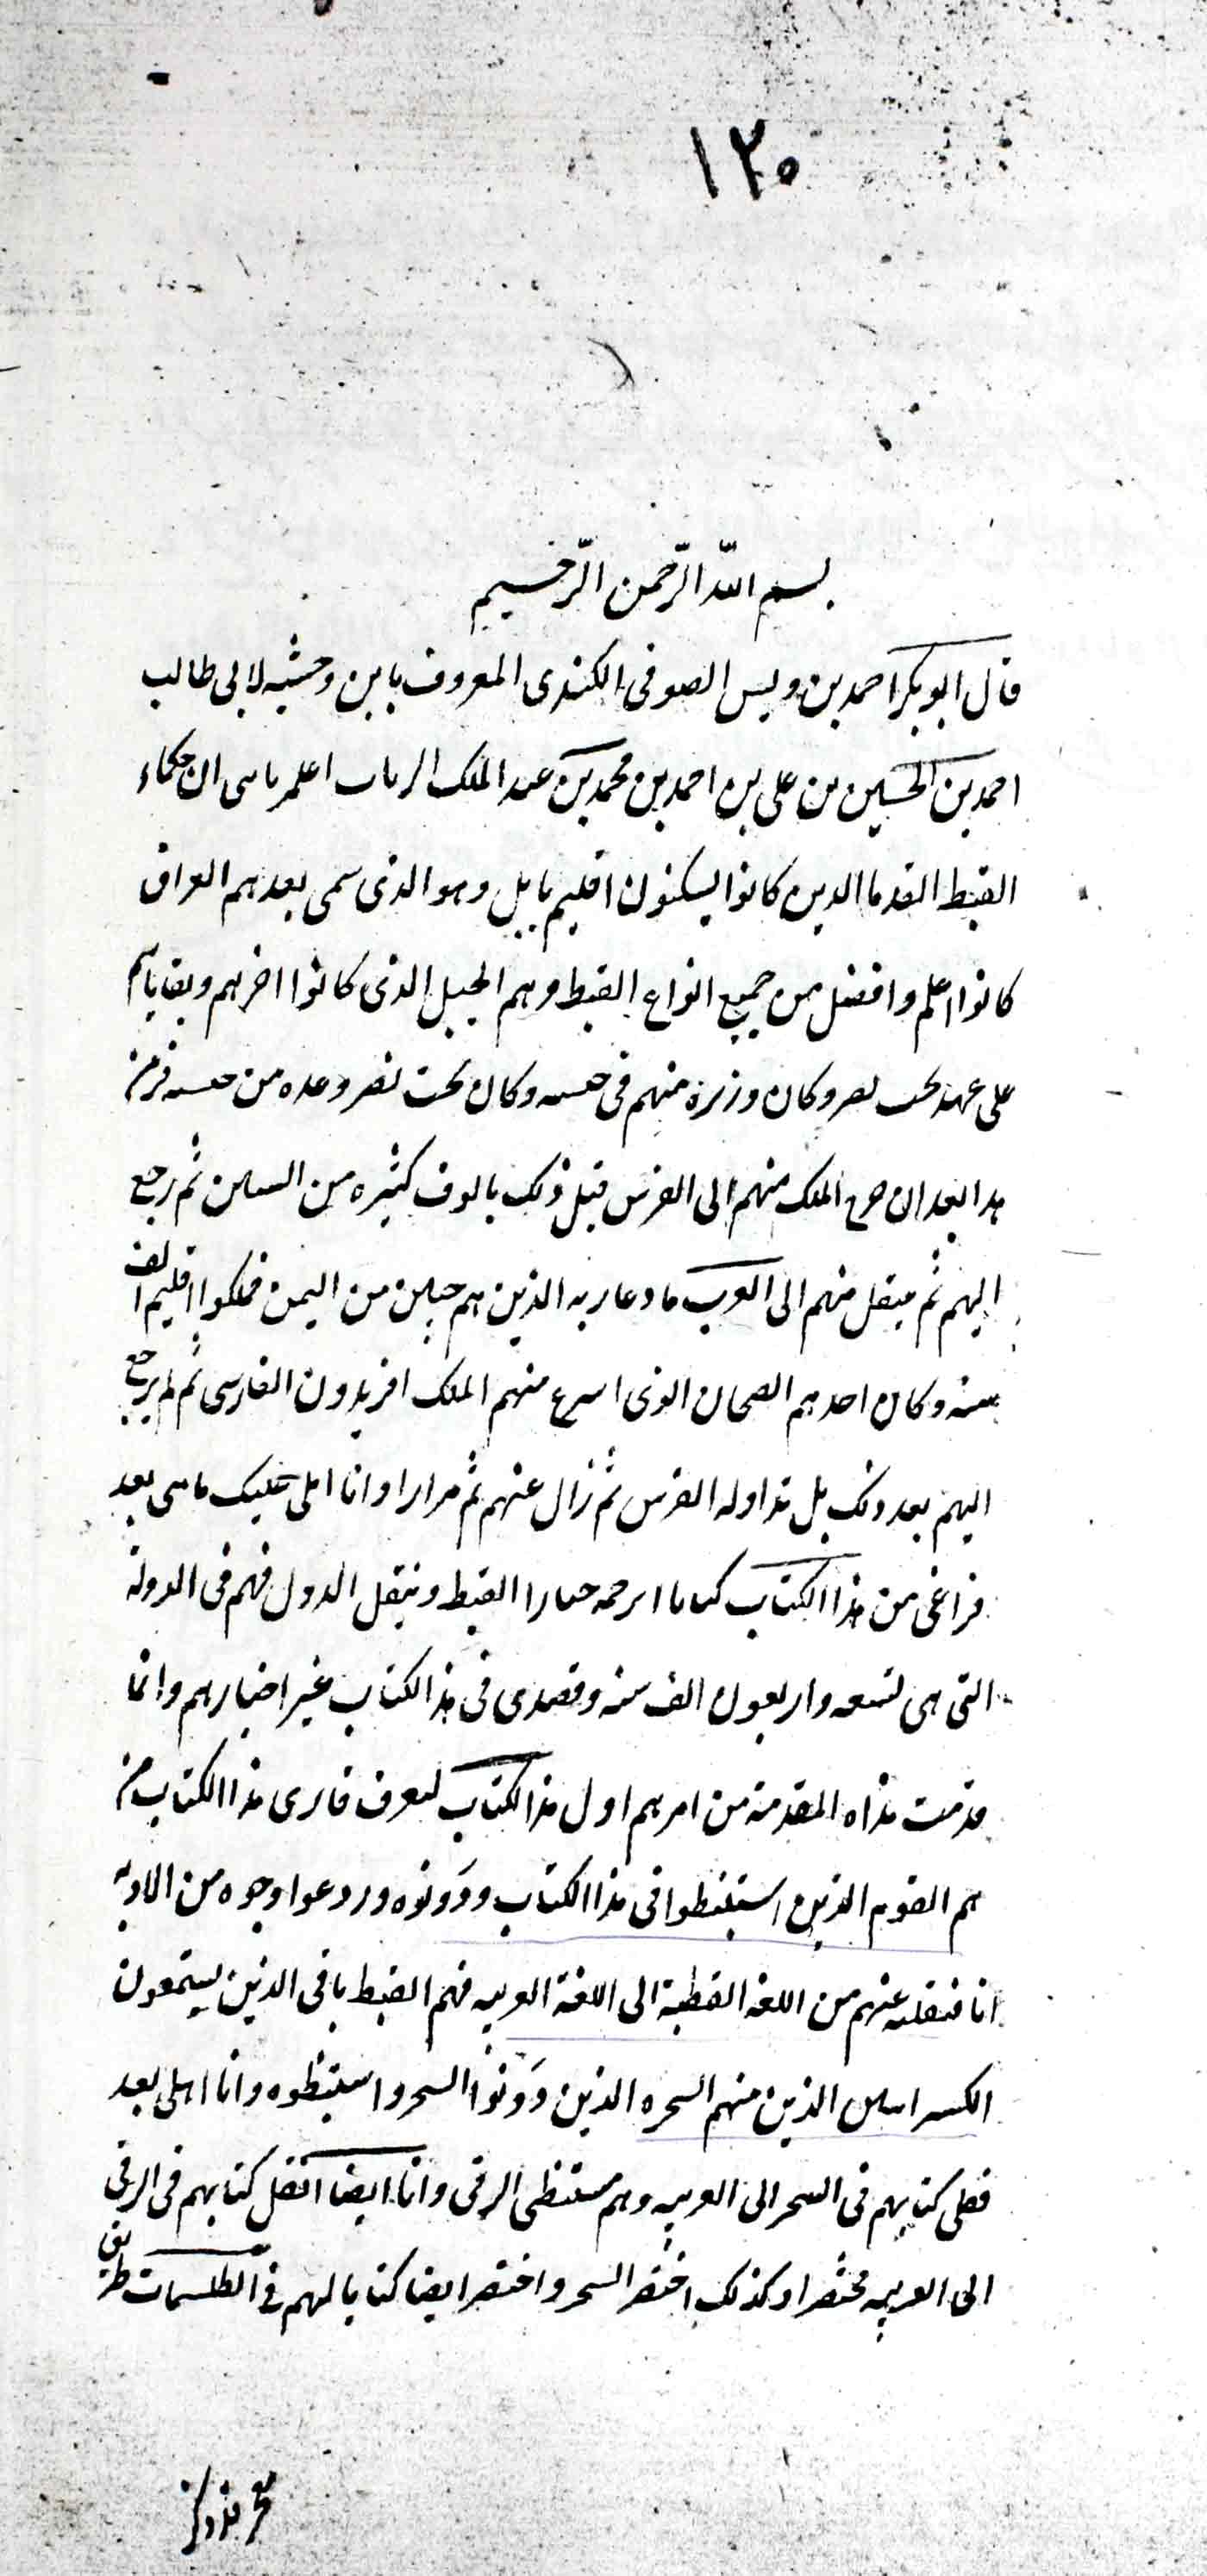 ١٢٠
بسم الله الرحمن الرحيم
قال ابو بكر احمد بن وليس الصوفى الكندى المعروف بابن وحشيه لابى طالب
احمد بن الحسين بن على بن احمد بن محمد بن عبد الملك الريات اعلم يا بنى ان حكماء
القبط القدما الدين كانوا يسكنون اقليم بابل وهو الذى سمى بعدهم العراق
كانوا اعلم وافضل من جميع انواع القبط وهم الجيل الذى كانوا اخرهم وبقاياهم
على عهد بخت نصر وكان وزره منهم فى وكان بخت نصر وعده من
هدا بعد ان الملك منهم الى الفرس قبل ذلك بالوف كثيره من السنين ثم رجع
اليهم ثم ينقل منهم الى العرب عاد عاربه الذين هم من اليمن فملكوا اقليم الف
سنه وكان احدهم الذى منهم الملك افريدون الفارسى ثم لم يرجع
اليهم بعد دلك بل تداوله الفرس ثم زال عنهم ثم مرارا وانا املى عليك يا بنى بعد
فراغى من هذا الكتاب كتابا القبط وينقل الدول فهم فى الدولة
التى هى تسعه واربعون الف سنه وقصدى فى هذا الكتاب غير اخبارهم وانما
قدمت هذه المقدمة من امرهم اول هذا الكتاب ليعرف قارى هذا الكتاب من
هم القوم الذين استنبطوا فى هذا الكتاب ودونوه وردعوا وجوه من
انا فنقلته عنهم من اللغه القطبة الى اللغة العربيه فهم القبط باقى الذين يستمعون
الذين منهم السحره الذين دونوا السحر واستنبطوه وانا املى بعد
فصلى كتابهم فى السحر الى العربيه وهم مستنبطى الرقى وانا ايضا انقل كتابهم فى الرقى
الى العربيه مختصرا وكذلك اختصر السحر واختصر ايضا كتابا لهم فى الطلسمات طريق